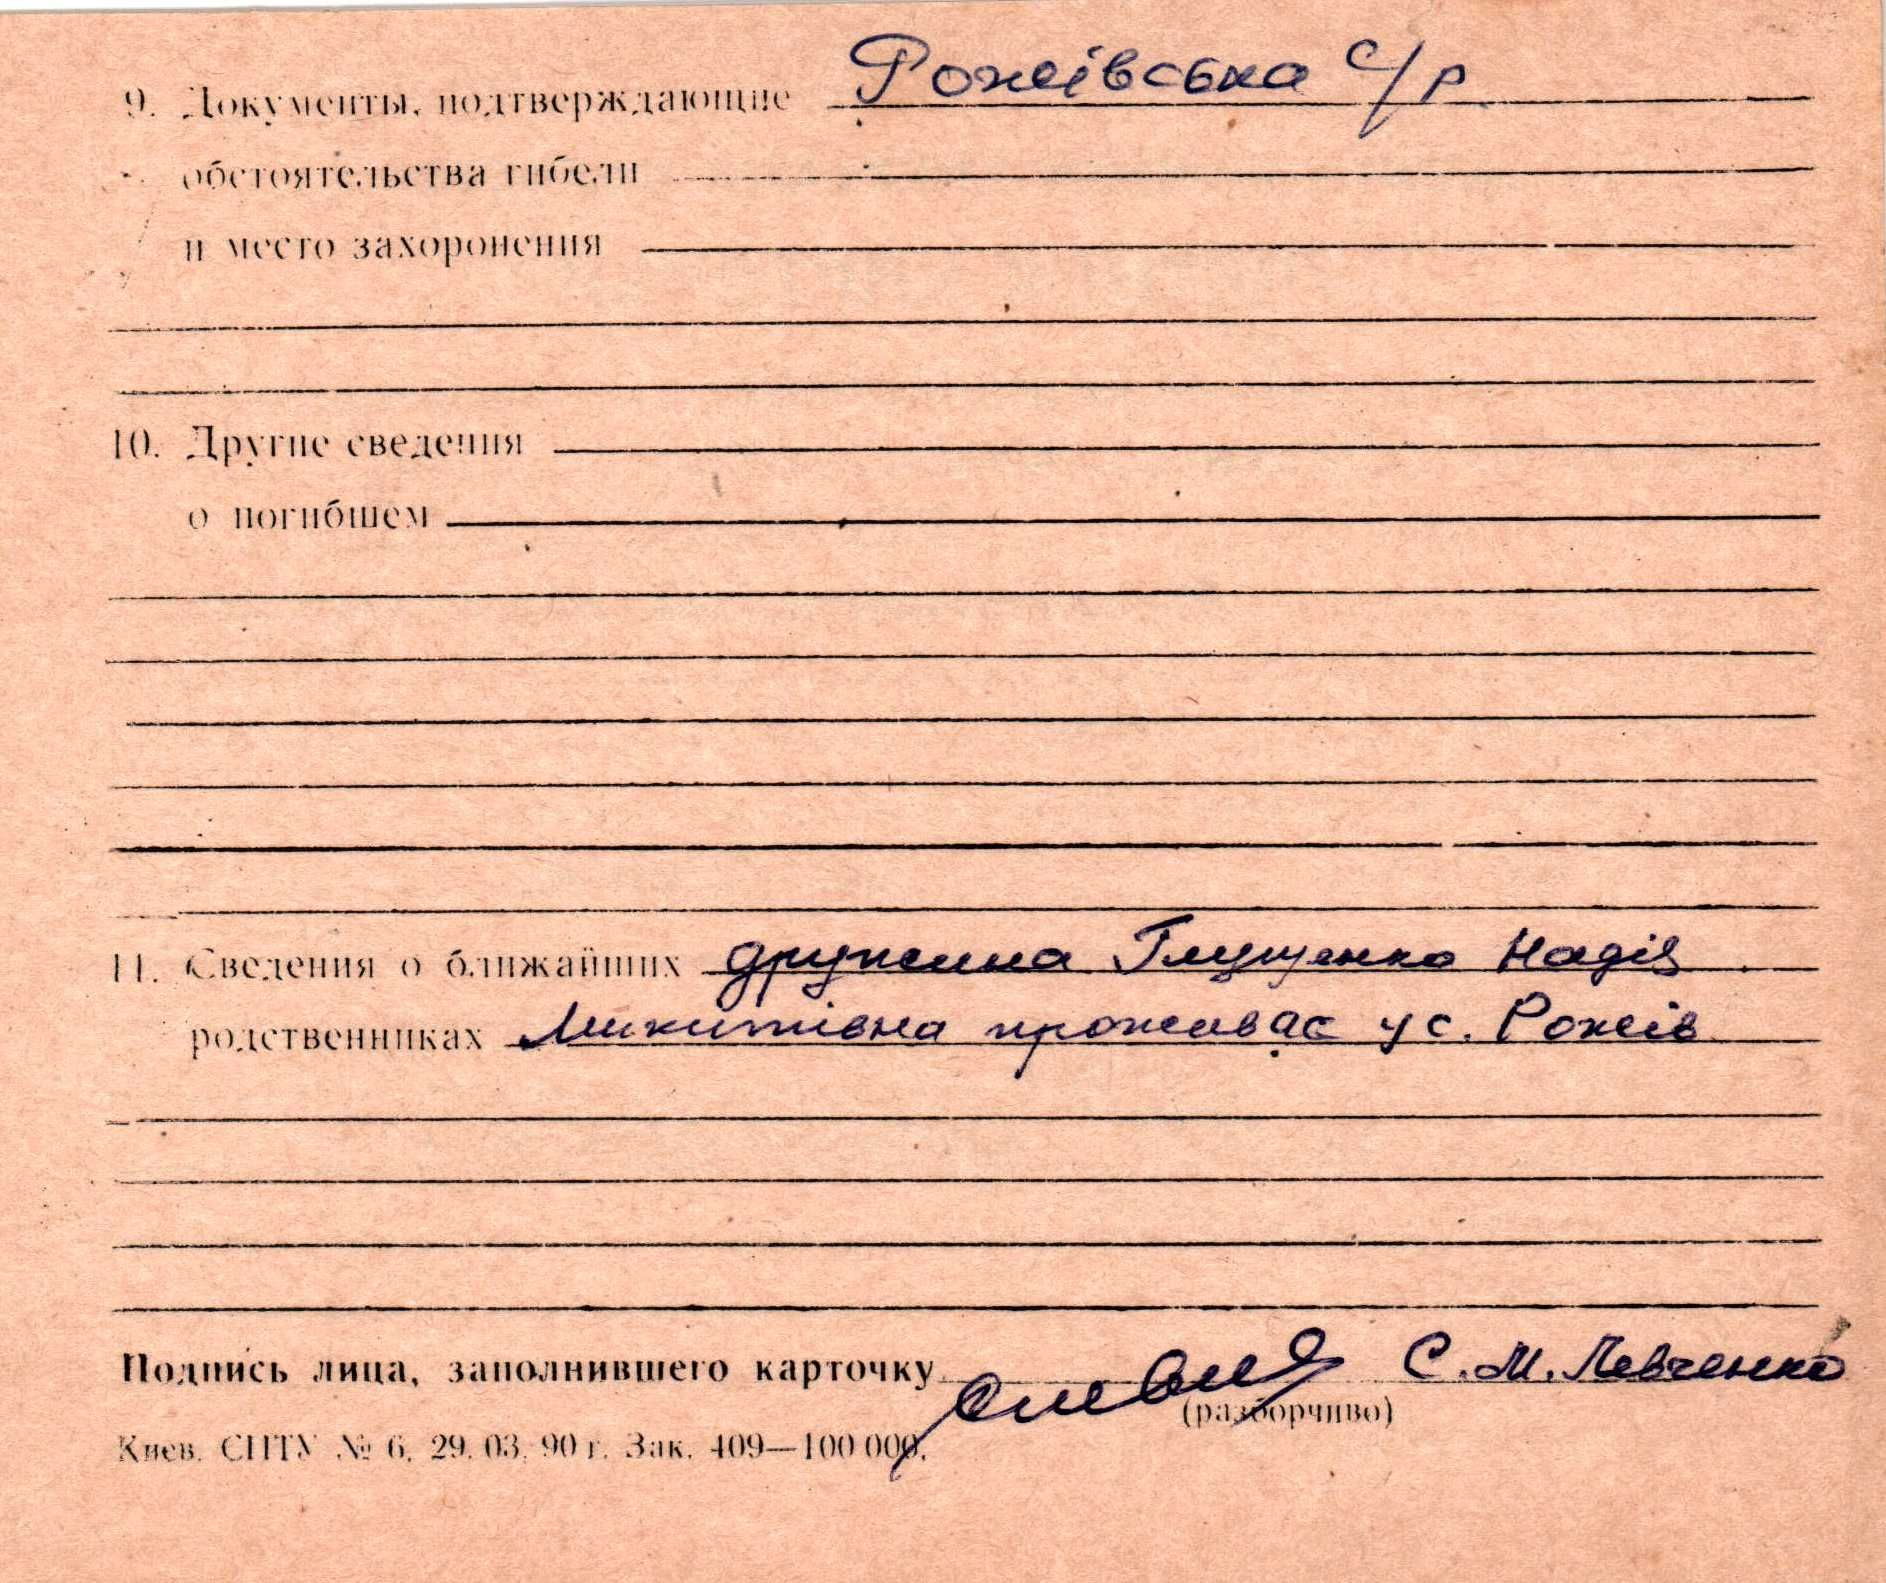 9. Документы, подтверждающие Рожівська с/р
обстоятельства гибели
и место захоронения
10. Другие сведения
о погибшем
11. Сведения о ближайших дружина Глущенко Надія
родственниках Микитівна проживає у с. Рожів
Подпись лица, заполнившего карточку С. М. Левченко
(разборчиво)
Киев. СПТУ № 6. 29. 03. 90 г. Зак. 409—100 000.